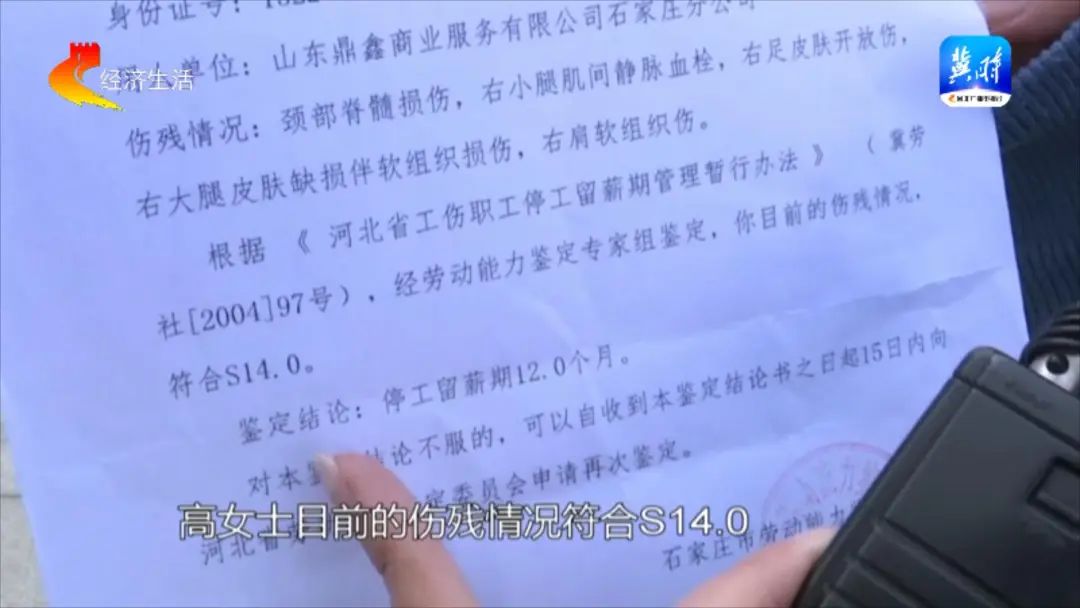 身份证号：
经济生活
冀时
单位：山东鼎鑫商业服务有限公司石家庄分公司
伤残情况：颈部脊髓损伤，右小腿肌间静脉血栓，右足皮肤开放伤，
右大腿皮肤缺损伴软组织损伤，右肩软组织伤。
根据《河北省工伤职工停工留薪期管理暂行办法》（冀劳
社[2004]97号），经劳动能力鉴定专家组鉴定，你目前的伤残情况，
符合S14.0。
鉴定结论：停工留薪期12.0个月。
对本 结论不服的，可以自收到本鉴定结论书之日起15日内向
河北省 定委员会申请再次鉴定。
石家庄市劳动能力
高女士目前的伤残情况符合S14.0